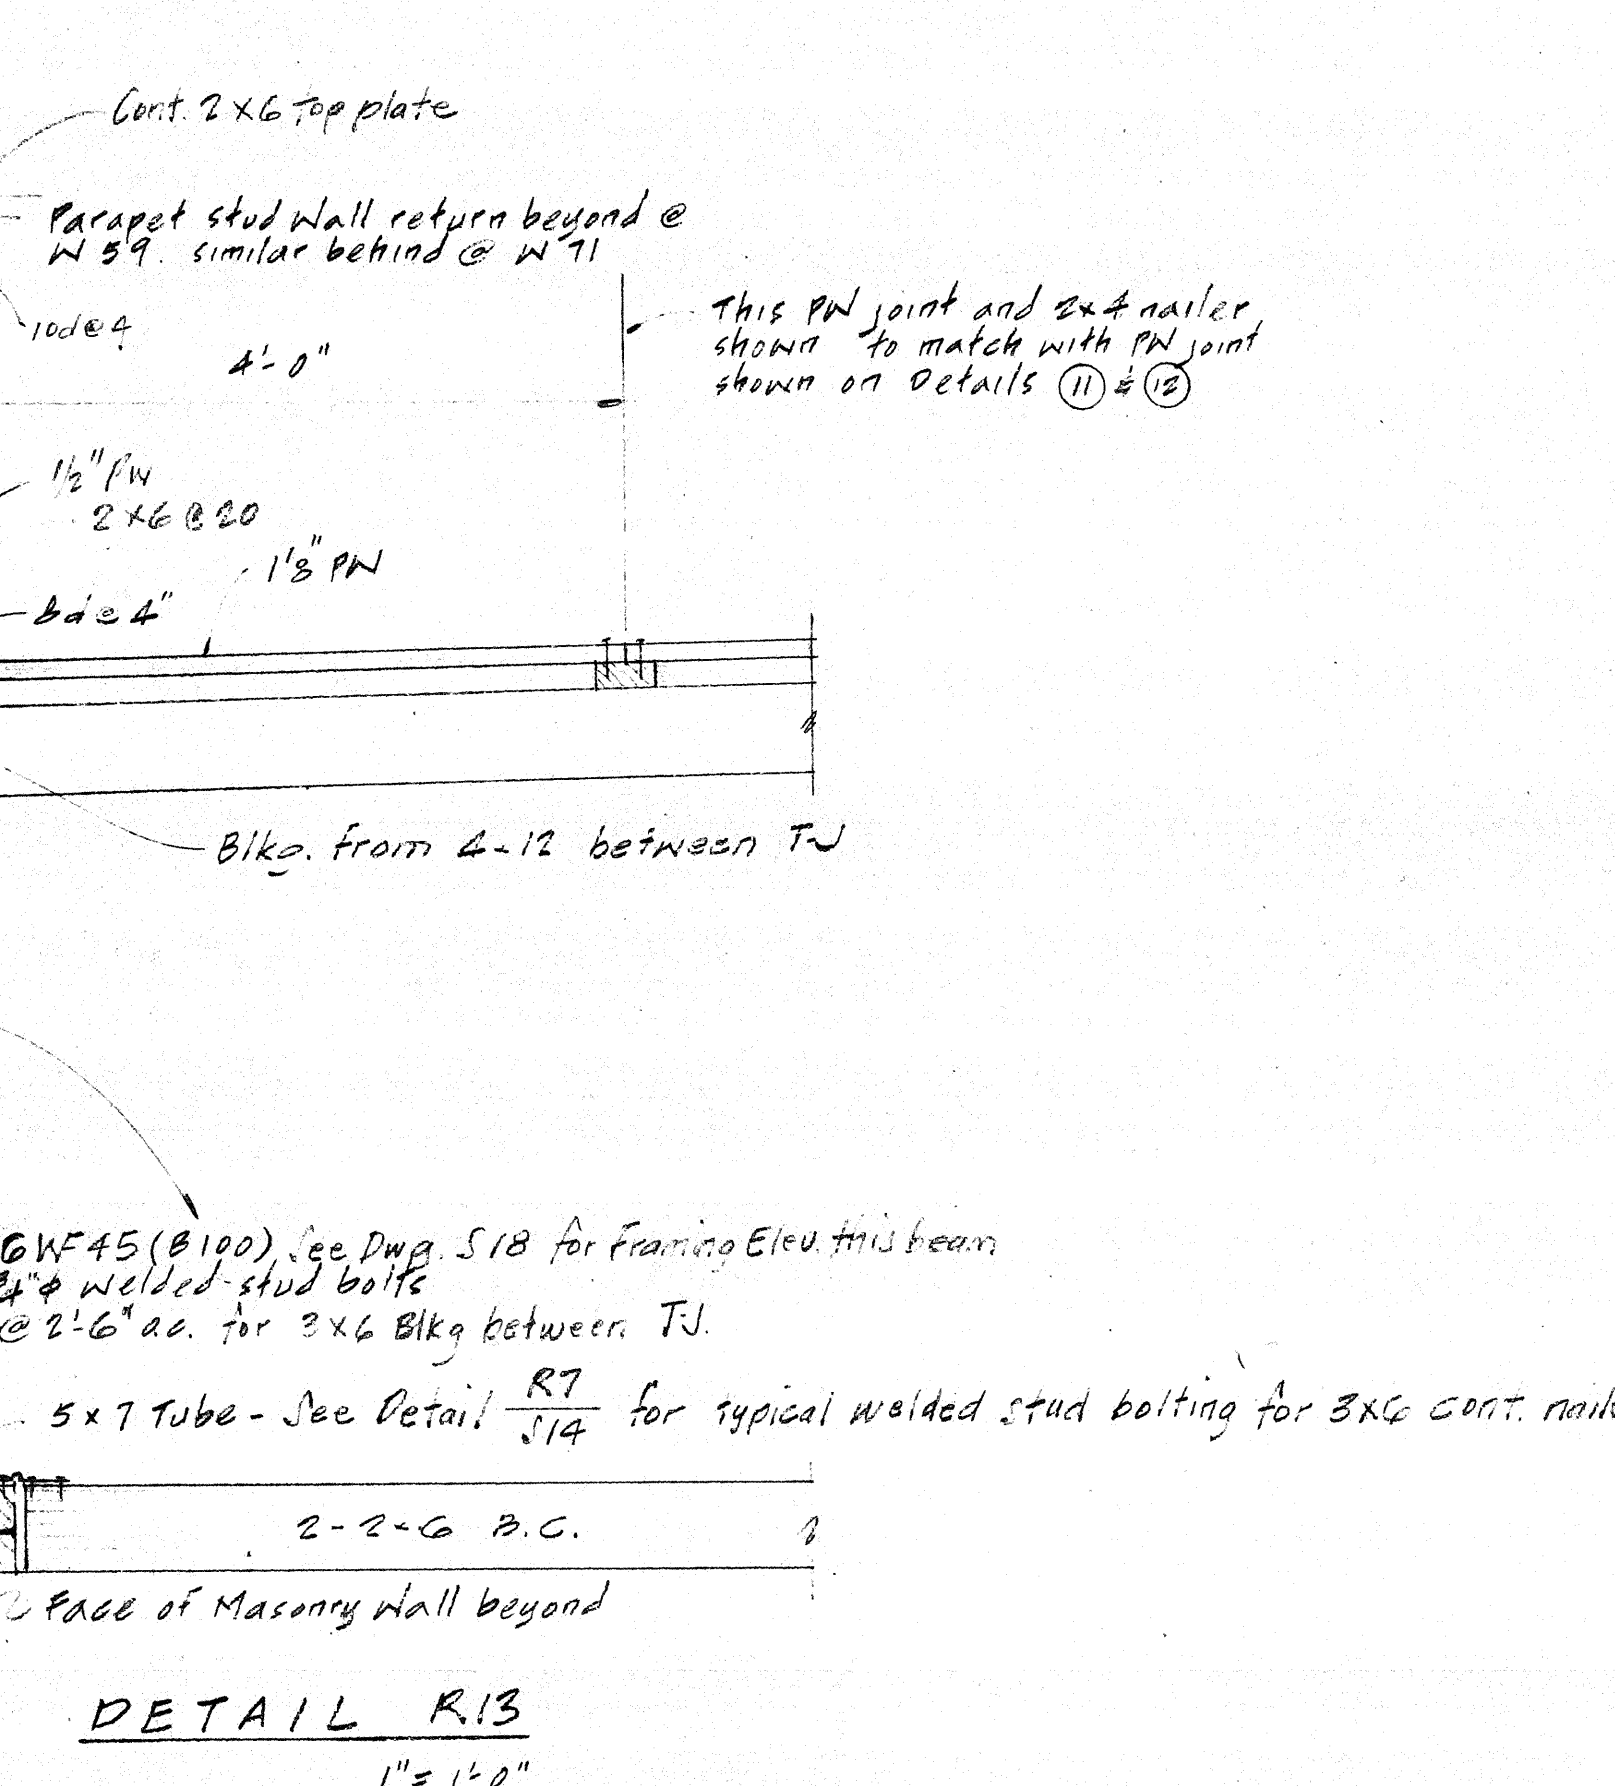 Cont. 2x6 top plate
Parapet stud Wall return beyond @
W 59. similar behind @ W 71
10d@4
4'-0"
This PW joint and 2x4 nailer
shown to match with PW joint
shown on Details 11 & 12
1/2" PW
2x6 @ 20
1'8" PW
8d @ 4"
Blkg. from 4x12 between T-J
6WF45 (B100) See Dwg. S18 for Framing Elev. this beam
3/4"φ welded-stud bolts
@ 2'-6" o.c. for 3x6 Blkg between T-J.
5x7 Tube - See Detail R7/S14 for typical welded stud bolting for 3x6 cont.
2-2x6 B.C.
Face of Masonry Wall beyond
DETAIL R.13
1" = 1'-0"